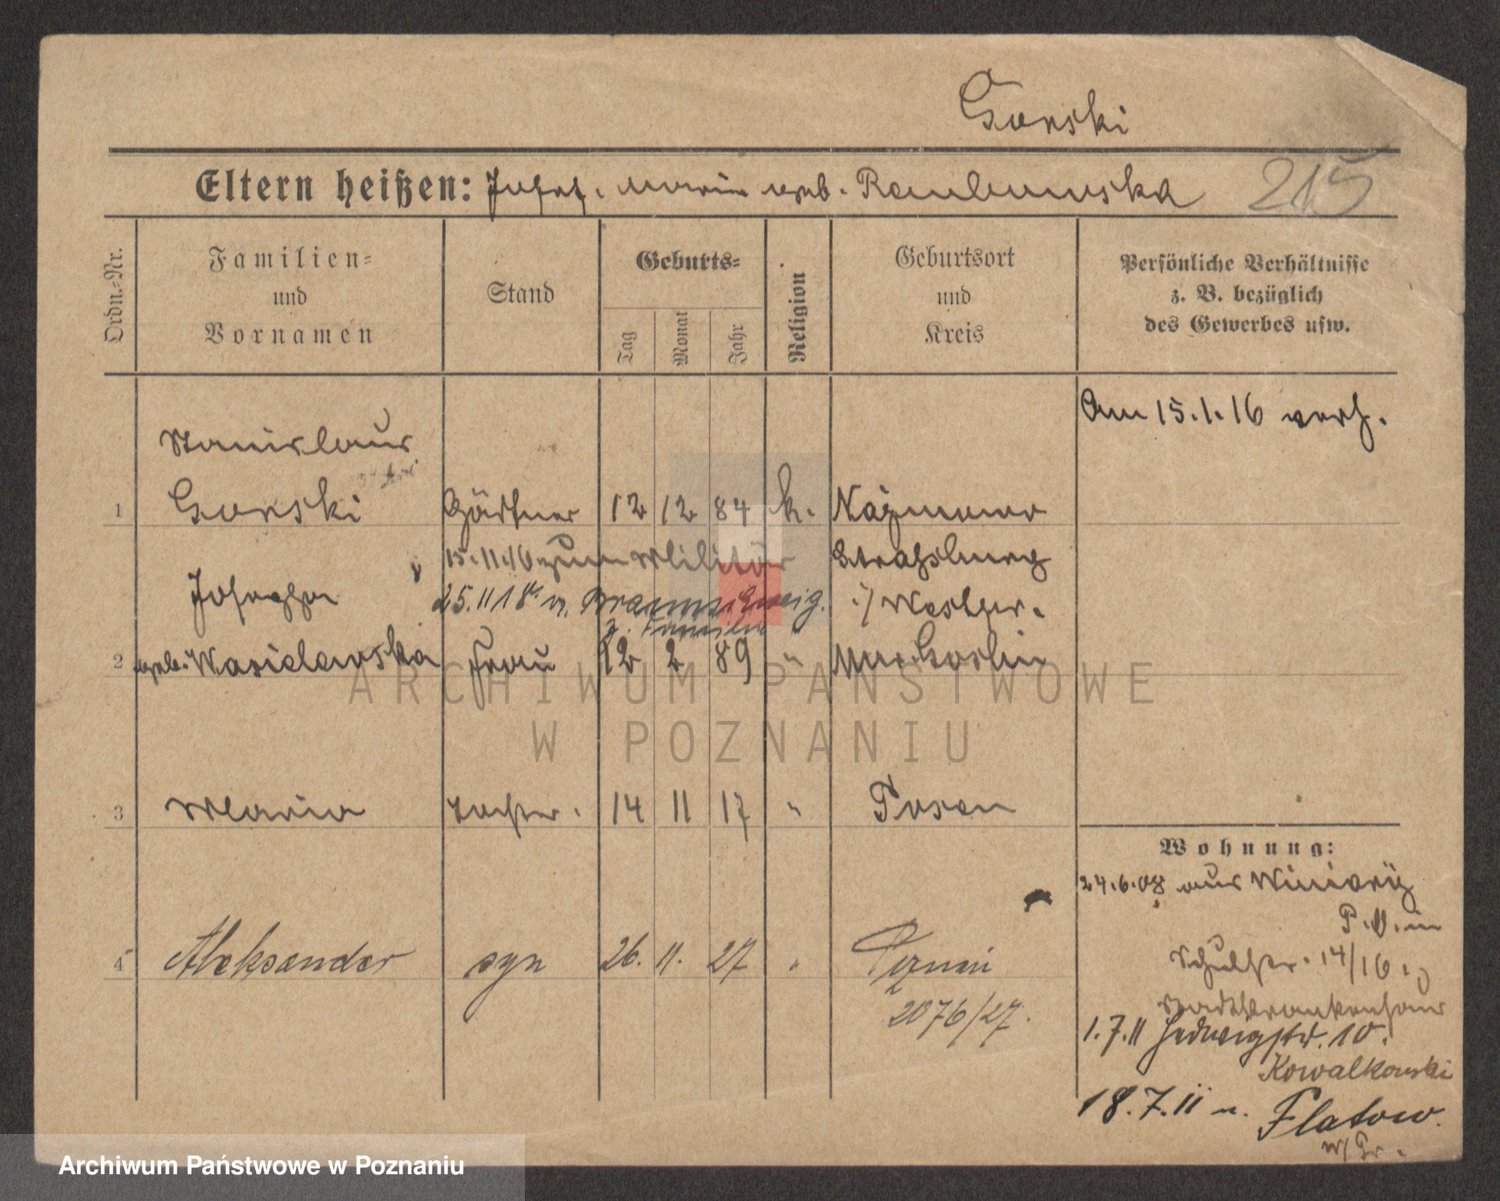 Gorski
Eltern heißen: Josef. Maria geb.
215
Ordn.-Nr.
Familien-
und
Vornamen
Stand
Geburts-
Tag
Monat
Jahr
Religion
Geburtsort
und
Kreis
Persönliche Verhältnisse
z. B. bezüglich
des Gewerbes usw.
Am 15.1.16 verh.
Stanislaus
1 Gorski Gärtner 12 12 84 k.
15.11.16 zum Militär Strassburg
Josepha 25.11 18 n. Braunschweig. / Westpr.
z. Familie
2 geb. Wasielewska Frau 12 2 89 " Mur. Goslin
3 Maria Tochter. 14 11 17 " Posen
Wohnung:
24.6.08 aus Winiary
P. O. in
4 Aleksander syn 26. 11. 27 " Poznań
Schulstr. 14/16.
2076/27.
Stadtkrankenhaus
1.7.11 Hedwigstr. 10.
Kowalkowski
18.7.11 n. Flatow.
W/Pr.
ARCHIWUM PAŃSTWOWE
W POZNANIU
Archiwum Państwowe w Poznaniu